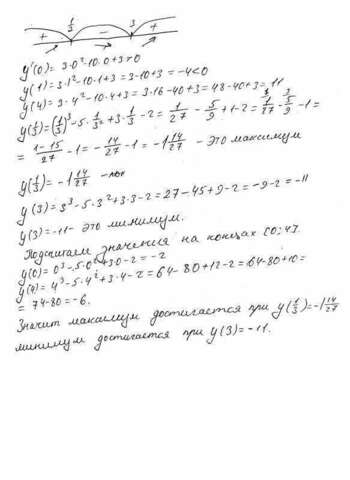 1/3 3
+ − +
y'(0) = 3·0²-10·0+3>0
y(1) = 3·1²-10·1+3=3-10+3=-4<0
y(4) = 3·4²-10·4+3=3·16-40+3=48-40+3=11
y(1/3)=(1/3)³-5·1/3²+3·1/3-2=1/27-5/9+1-2=1/27-5/9-1=
= 1-15/27-1=-14/27-1=-1 14/27 - это максимум
y(1/3)=-1 14/27
y(3)=3³-5·3²+3·3-2=27-45+9-2=-9-2=-11
y(3)=-11- это минимум.
Подсчитаем значения на концах [0;4].
y(0)=0³-5·0²+3·0-2=-2
y(4)=4³-5·4²+3·4-2=64-80+12-2=64-80+10=
= 74-80=-6.
Значит максимум достигается при y(1/3)=-1 14/27
минимум достигается при y(3)=-11.